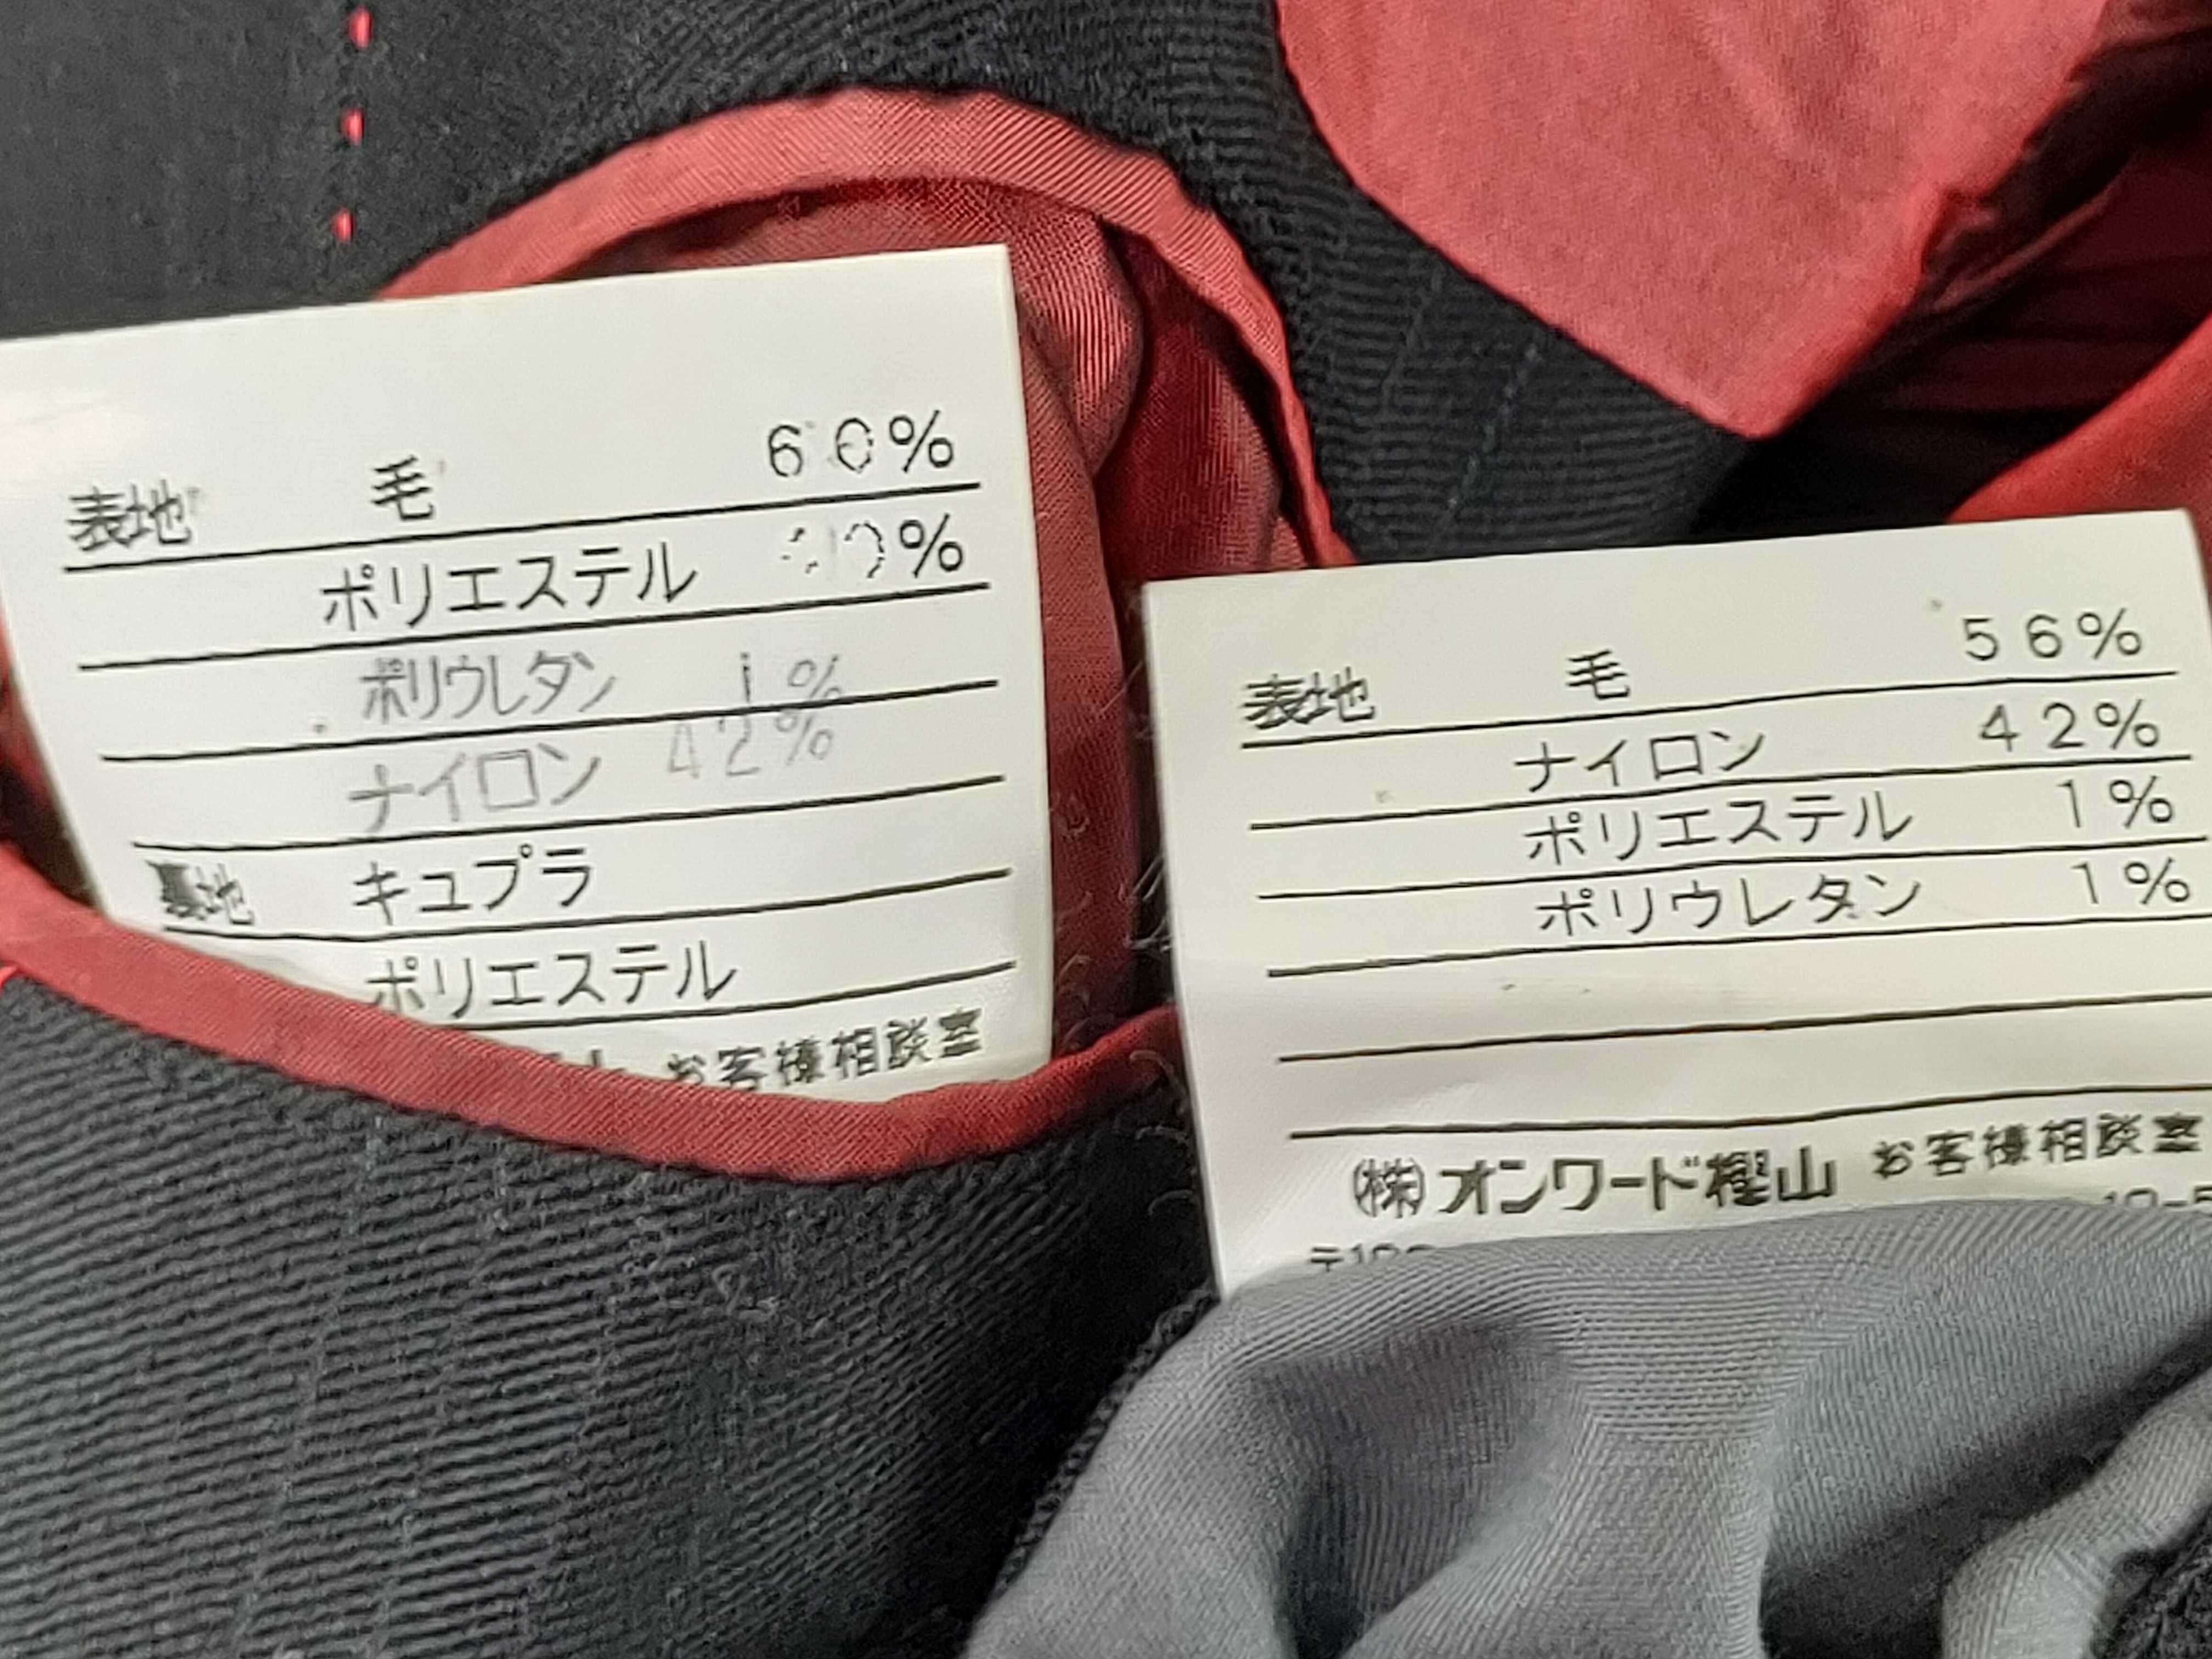 表地 毛 60%
ポリエステル %
ポリウレタン 1%
ナイロン 42%
裏地 キュプラ
ポリエステル
お客様相談室
表地 毛 56%
ナイロン 42%
ポリエステル 1%
ポリウレタン 1%
㈱オンワード樫山 お客様相談室